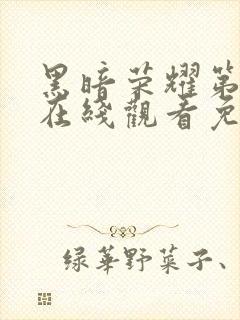 黑暗荣耀第
在线觀看免
绿華野菜子、